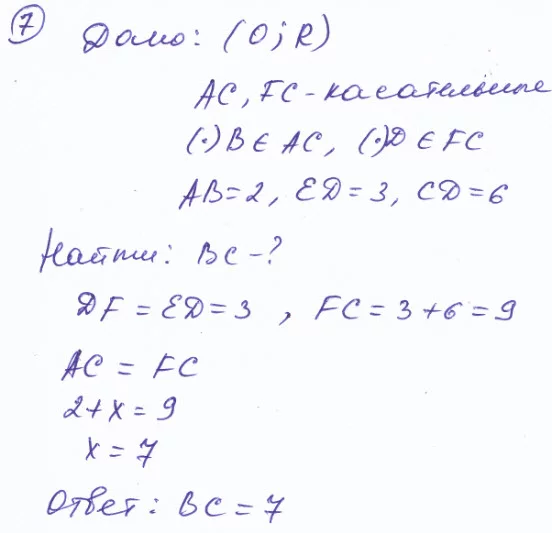 7 Дано: (O; R)
AC, FC - касательные
(·)B ∈ AC, (·)D ∈ FC
AB = 2, ED = 3, CD = 6
Найти: BC - ?
DF = ED = 3 , FC = 3 + 6 = 9
AC = FC
2 + x = 9
x = 7
Ответ: BC = 7